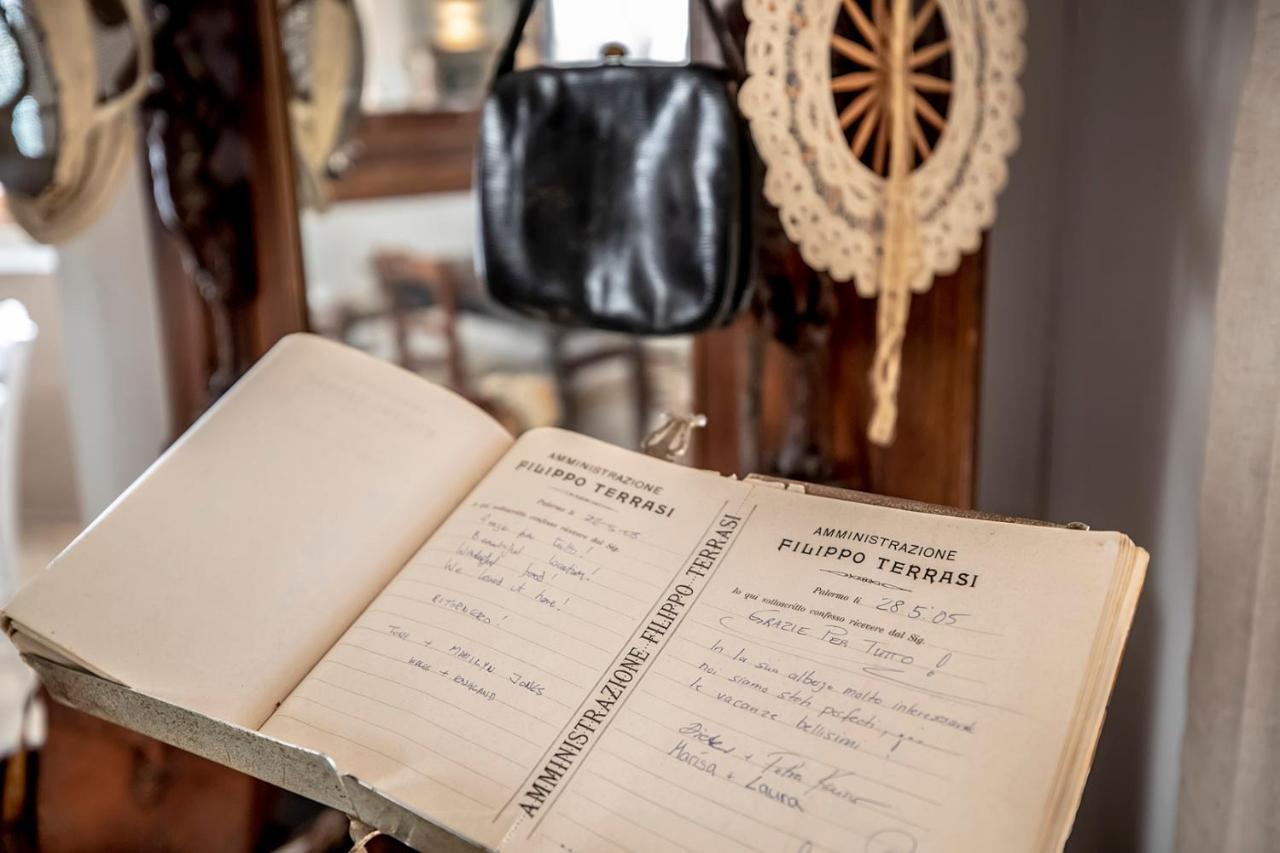 AMMINISTRAZIONE
FILIPPO TERRASI
Palermo li 28-5-05
io qui sottoscritto confesso ricevere dal Sig.
per tutto!
Beautiful location!
Wonderful food!
We loved it here!
RITORNERO!
TONI + MARILYN JONES
WALES + ENGLAND
AMMINISTRAZIONE FILIPPO TERRASI
AMMINISTRAZIONE
FILIPPO TERRASI
Palermo li 28.5.05
Io qui sottoscritto confesso ricevere dal Sig.
GRAZIE PER TUTTO!
In la sua albergo molto interessante
noi siamo stati perfecti,
le vacanze bellisimi!
+ Petra
Marisa + Laura